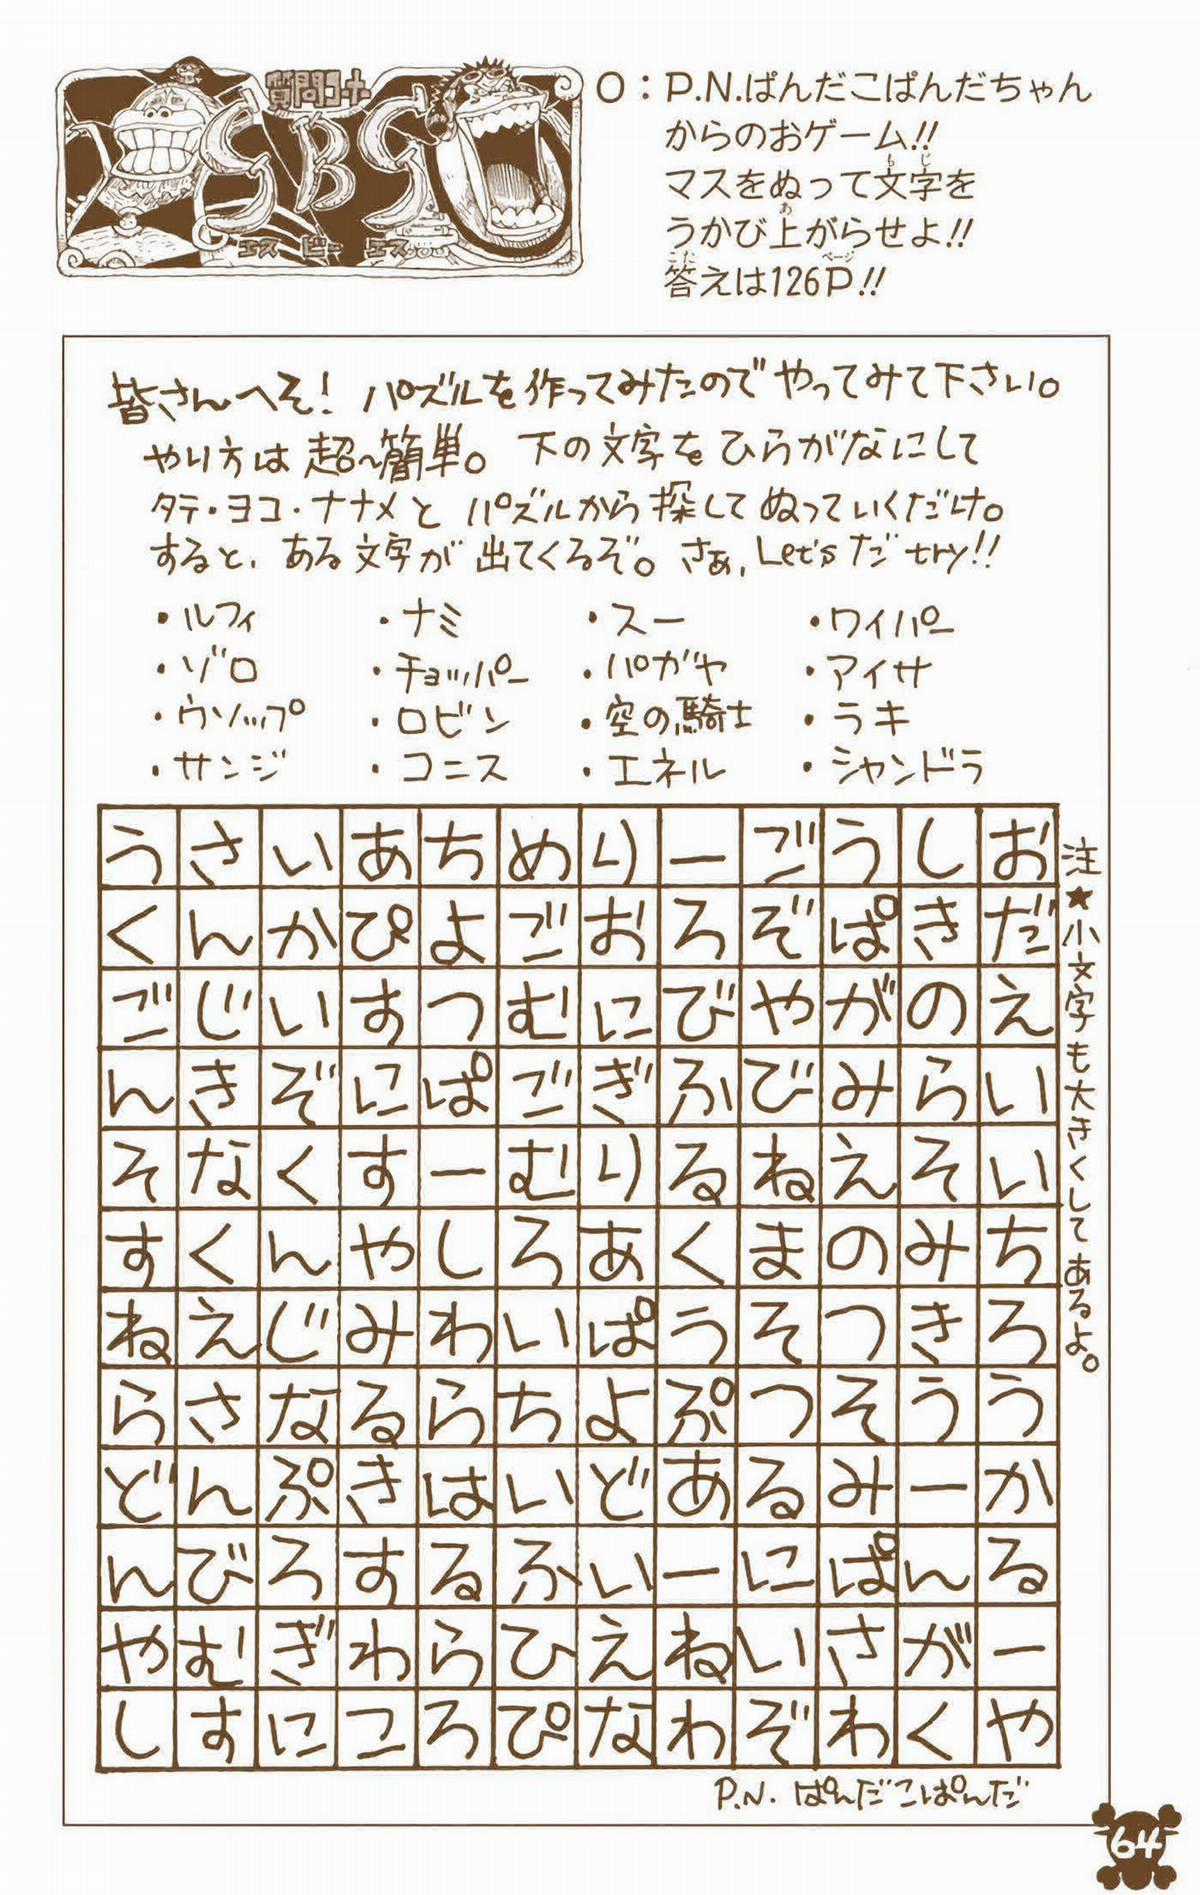 質問コーナー
SBS
エス ビー エス
O：P.N.ぱんだこぱんだちゃん
からのおゲーム!!
マスをぬって文字を
うかび上がらせよ!!
答えは126P!!
皆さんへそ! パズルを作ってみたのでやってみて下さい。
やり方は超〜簡単。下の文字をひらがなにして
タテ・ヨコ・ナナメとパズルから探してぬっていくだけ。
すると、ある文字が出てくるぞ。さぁ、Let'sだtry!!
・ルフィ ・ナミ ・スー ・ワイパー
・ゾロ ・チョッパー ・パガヤ ・アイサ
・ウソップ ・ロビン ・空の騎士 ・ラキ
・サンジ ・コニス ・エネル ・シャンドラ
う さ い あ ち め り ー ご う し お
く ん か ぴ よ ご お ろ ぞ ぱ き だ
ご じ い す つ む に び や が の え
ん き ぞ に ぱ ご ぎ ふ び み ら い
そ な く す ー む り る ね え そ い
す く ん や し ろ あ く ま の み ち
ね え じ み わ い ぱ う そ つ き ろ
ら さ な る ら ち よ ぷ つ そ う う
ど ん ぷ き は い ど あ る み ー か
ん び ろ す る ふ い ー に ぱ ん る
や む ぎ わ ら ひ え ね い さ が ー
し す に こ ろ ぴ な わ ぞ わ く や
注★小文字も大きくしてあるよ。
P.N. ぱんだこぱんだ
64